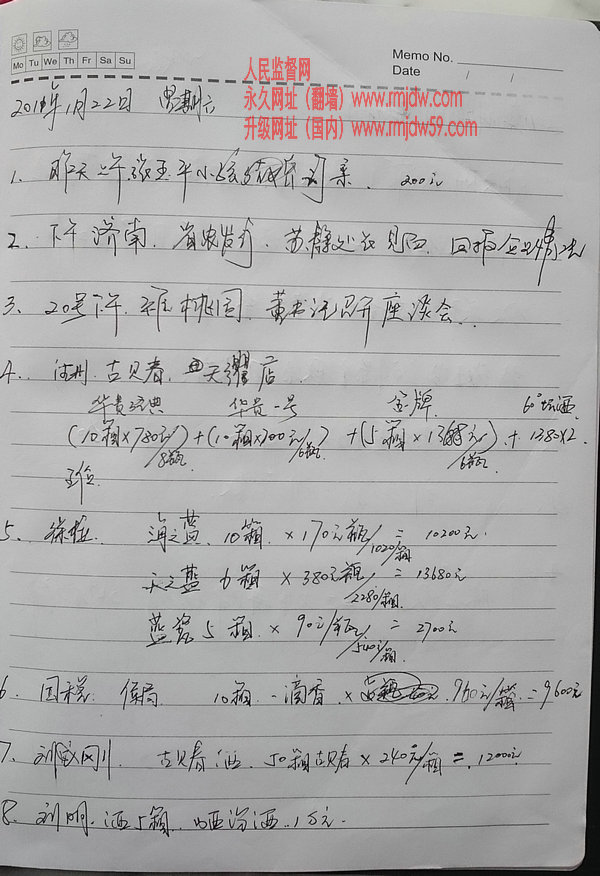 Memo No.
Mo Tu We Th Fr Sa Su
Date / /
人民监督网
永久网址（翻墙）www.rmjdw.com
升级网址（国内）www.rmjdw59.com
1月22日 星期六
1. 昨天上午张玉平小孩结婚 200元
2. 下午济南.省农发行.苏静处长见面.回报企业情况
3. 20号下午.桃园.黄书记召开座谈会..
4. 古贝春.天衢店
华贵经典 华贵一号 金牌 60°坛酒
(10箱×780元/8瓶)+(10箱×700元/6瓶)+(5箱×元/6瓶)+1380×2
5. 海之蓝 10箱×170元/瓶=10200元.
1020/箱
天之蓝 6箱×380元/瓶=13680元
2280/箱.
蓝瓷 5箱.×90元/瓶=2700元
540元/箱.
6. 国税 侯局 10箱.一滴香× 960元/箱=9600元
7. 刘成刚 古贝春酒.50箱古贝春×240元/箱=.12000元
8. 刘明.酒5箱.汾酒..1万元.